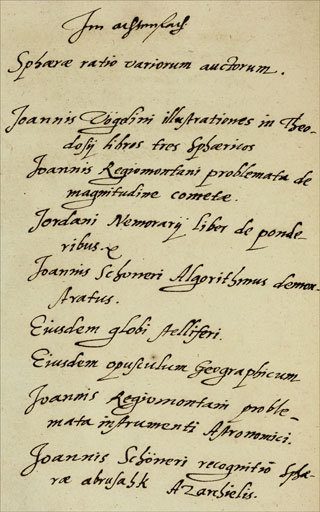 Im achten fach
Sphæræ ratio variorum auctorum.
Joannis Vögelini illustrationes in Theo-
dosij libros tres Sphæricos
Joannis Regiomontani problemata de
magnitudine cometæ.
Jordani Nemorarij liber de ponde-
ribus.
Joannis Schoneri Algorithmus demon
stratus.
Eiusdem globi stelliferi.
Eiusdem opusculum Geographicum
Joannis Regiomontani proble-
mata instrumenti Astronomici.
Joannis Schöneri recognitio Sphæ-
ræ abrusahk Azarchielis.